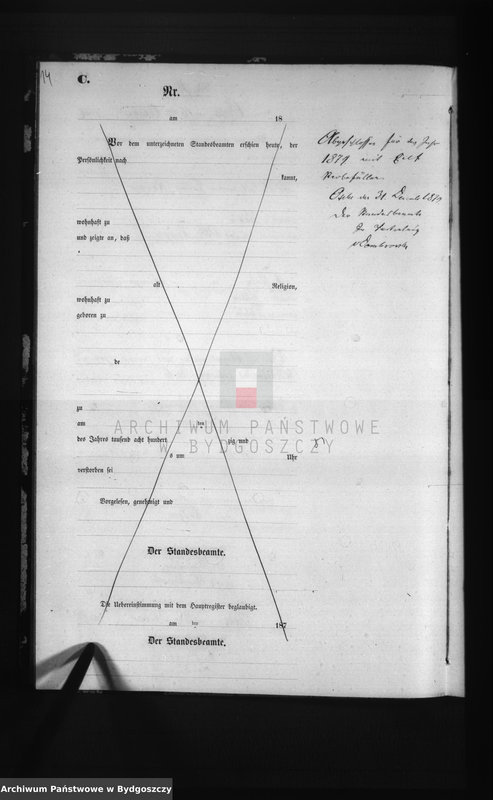 14
C.
Nr.
am 18
Vor dem unterzeichneten Standesbeamten erschien heute, der
Persönlichkeit nach
kannt,
wohnhaft zu
und zeigte an, daß
alt Religion,
wohnhaft zu
geboren zu
de
zu
am ten
des Jahres tausend acht hundert zig und
s um Uhr
verstorben sei
Vorgelesen, genehmigt und
Der Standesbeamte.
Die Uebereinstimmung mit dem Hauptregister beglaubigt.
am ten 187
Der Standesbeamte.
Abgeschlossen für das Jahr
1879 mit Elf
Sterbefällen.
den 31 Decemb 1879
Der Standesbeamte
In Vertretung
ARCHIWUM PAŃSTWOWE
W BYDGOSZCZY
Archiwum Państwowe w Bydgoszczy